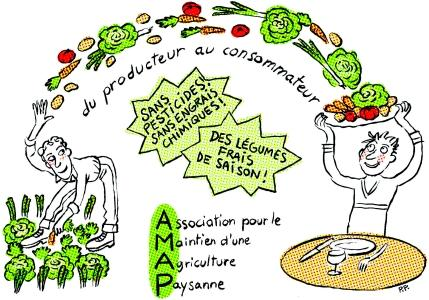 du producteur au consommateur
SANS
PESTICIDES,
SANS ENGRAIS
CHIMIQUES!
DES LÉGUMES
FRAIS
DE SAISON!
Association pour le
Maintien d'une
Agriculture
Paysanne
P.P.